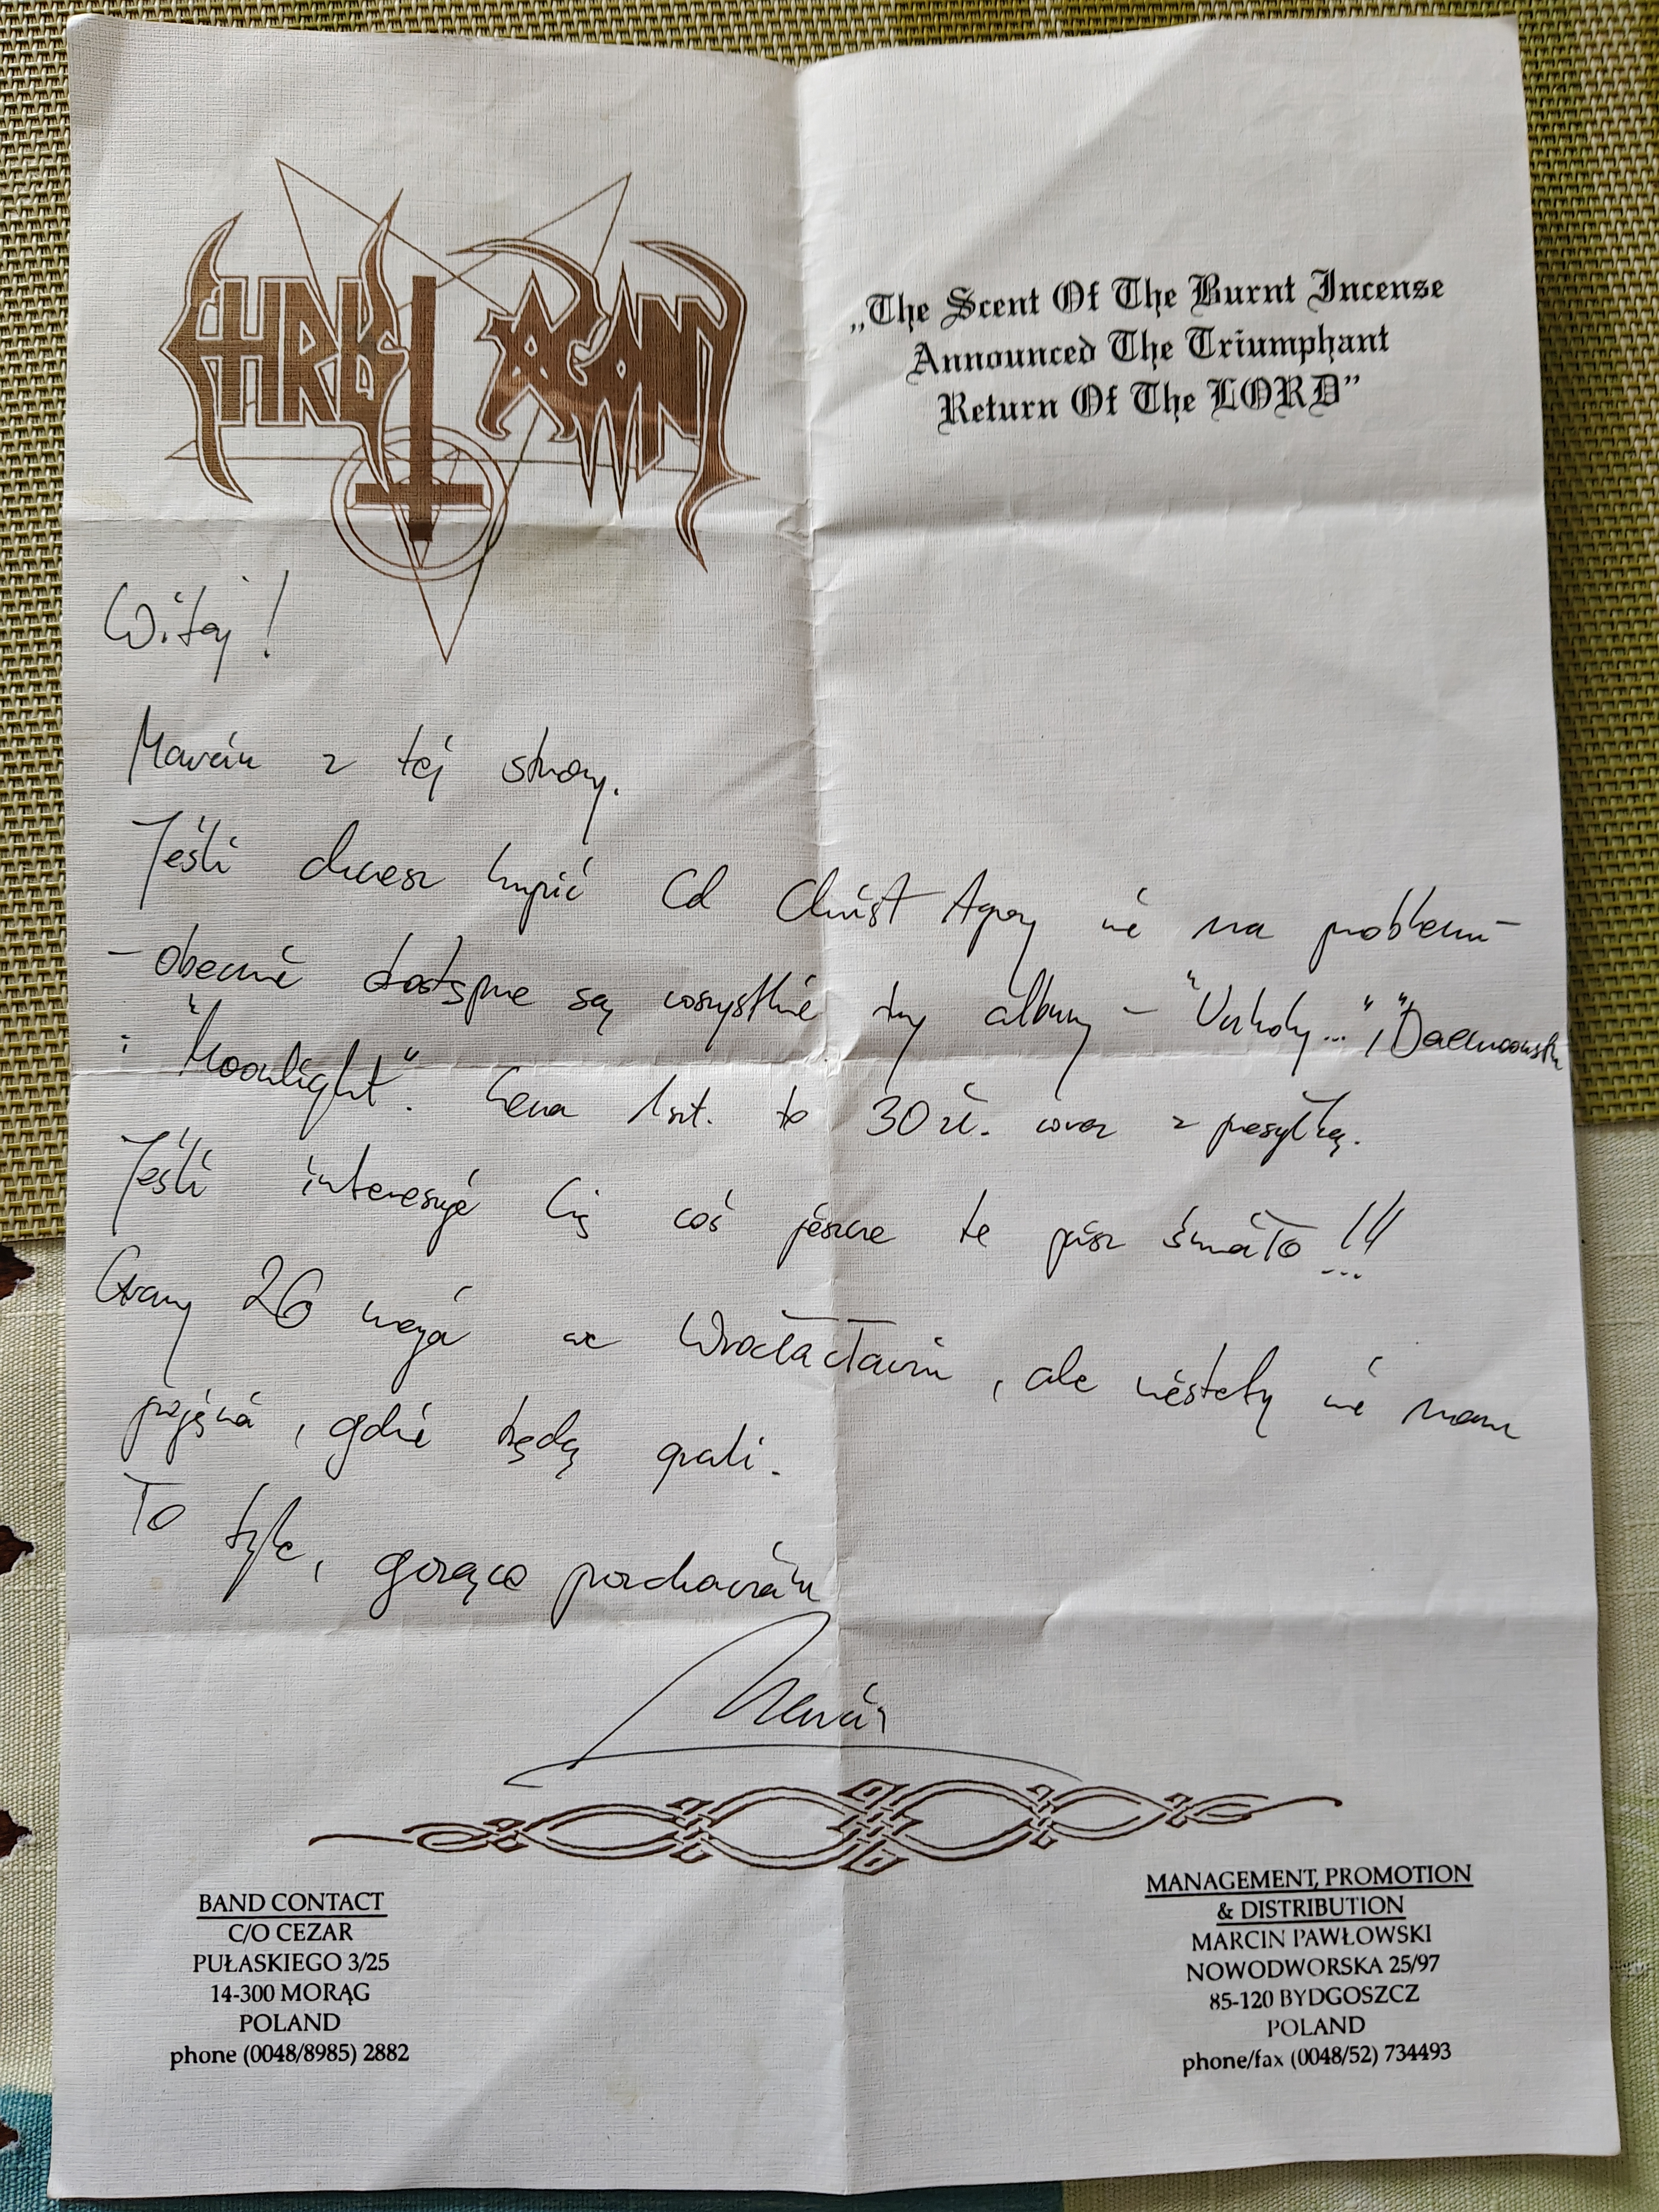 CHRIST AGONY
„The Scent Of The Burnt Incense
Announced The Triumphant
Return Of The LORD”
Witaj!
Marcin z tej strony.
Jeśli chcesz kupić Cd Christ Agony nie ma problemu –
– obecnie dostępne są wszystkie trzy albumy – "Unholy...", "Daemoonseth"
i "Moonlight". Cena 1 szt. to 30 zł. wraz z przesyłką.
Jeśli interesuje Cię coś jeszcze to pisz śmiało!!!
Gramy 26 maja we Wrocłacławiu, ale niestety nie mam
pojęcia, gdzie będą grali.
To tyle, gorąco pozdrawiam
Marcin
BAND CONTACT
C/O CEZAR
PUŁASKIEGO 3/25
14-300 MORĄG
POLAND
phone (0048/8985) 2882
MANAGEMENT, PROMOTION
& DISTRIBUTION
MARCIN PAWŁOWSKI
NOWODWORSKA 25/97
85-120 BYDGOSZCZ
POLAND
phone/fax (0048/52) 734493